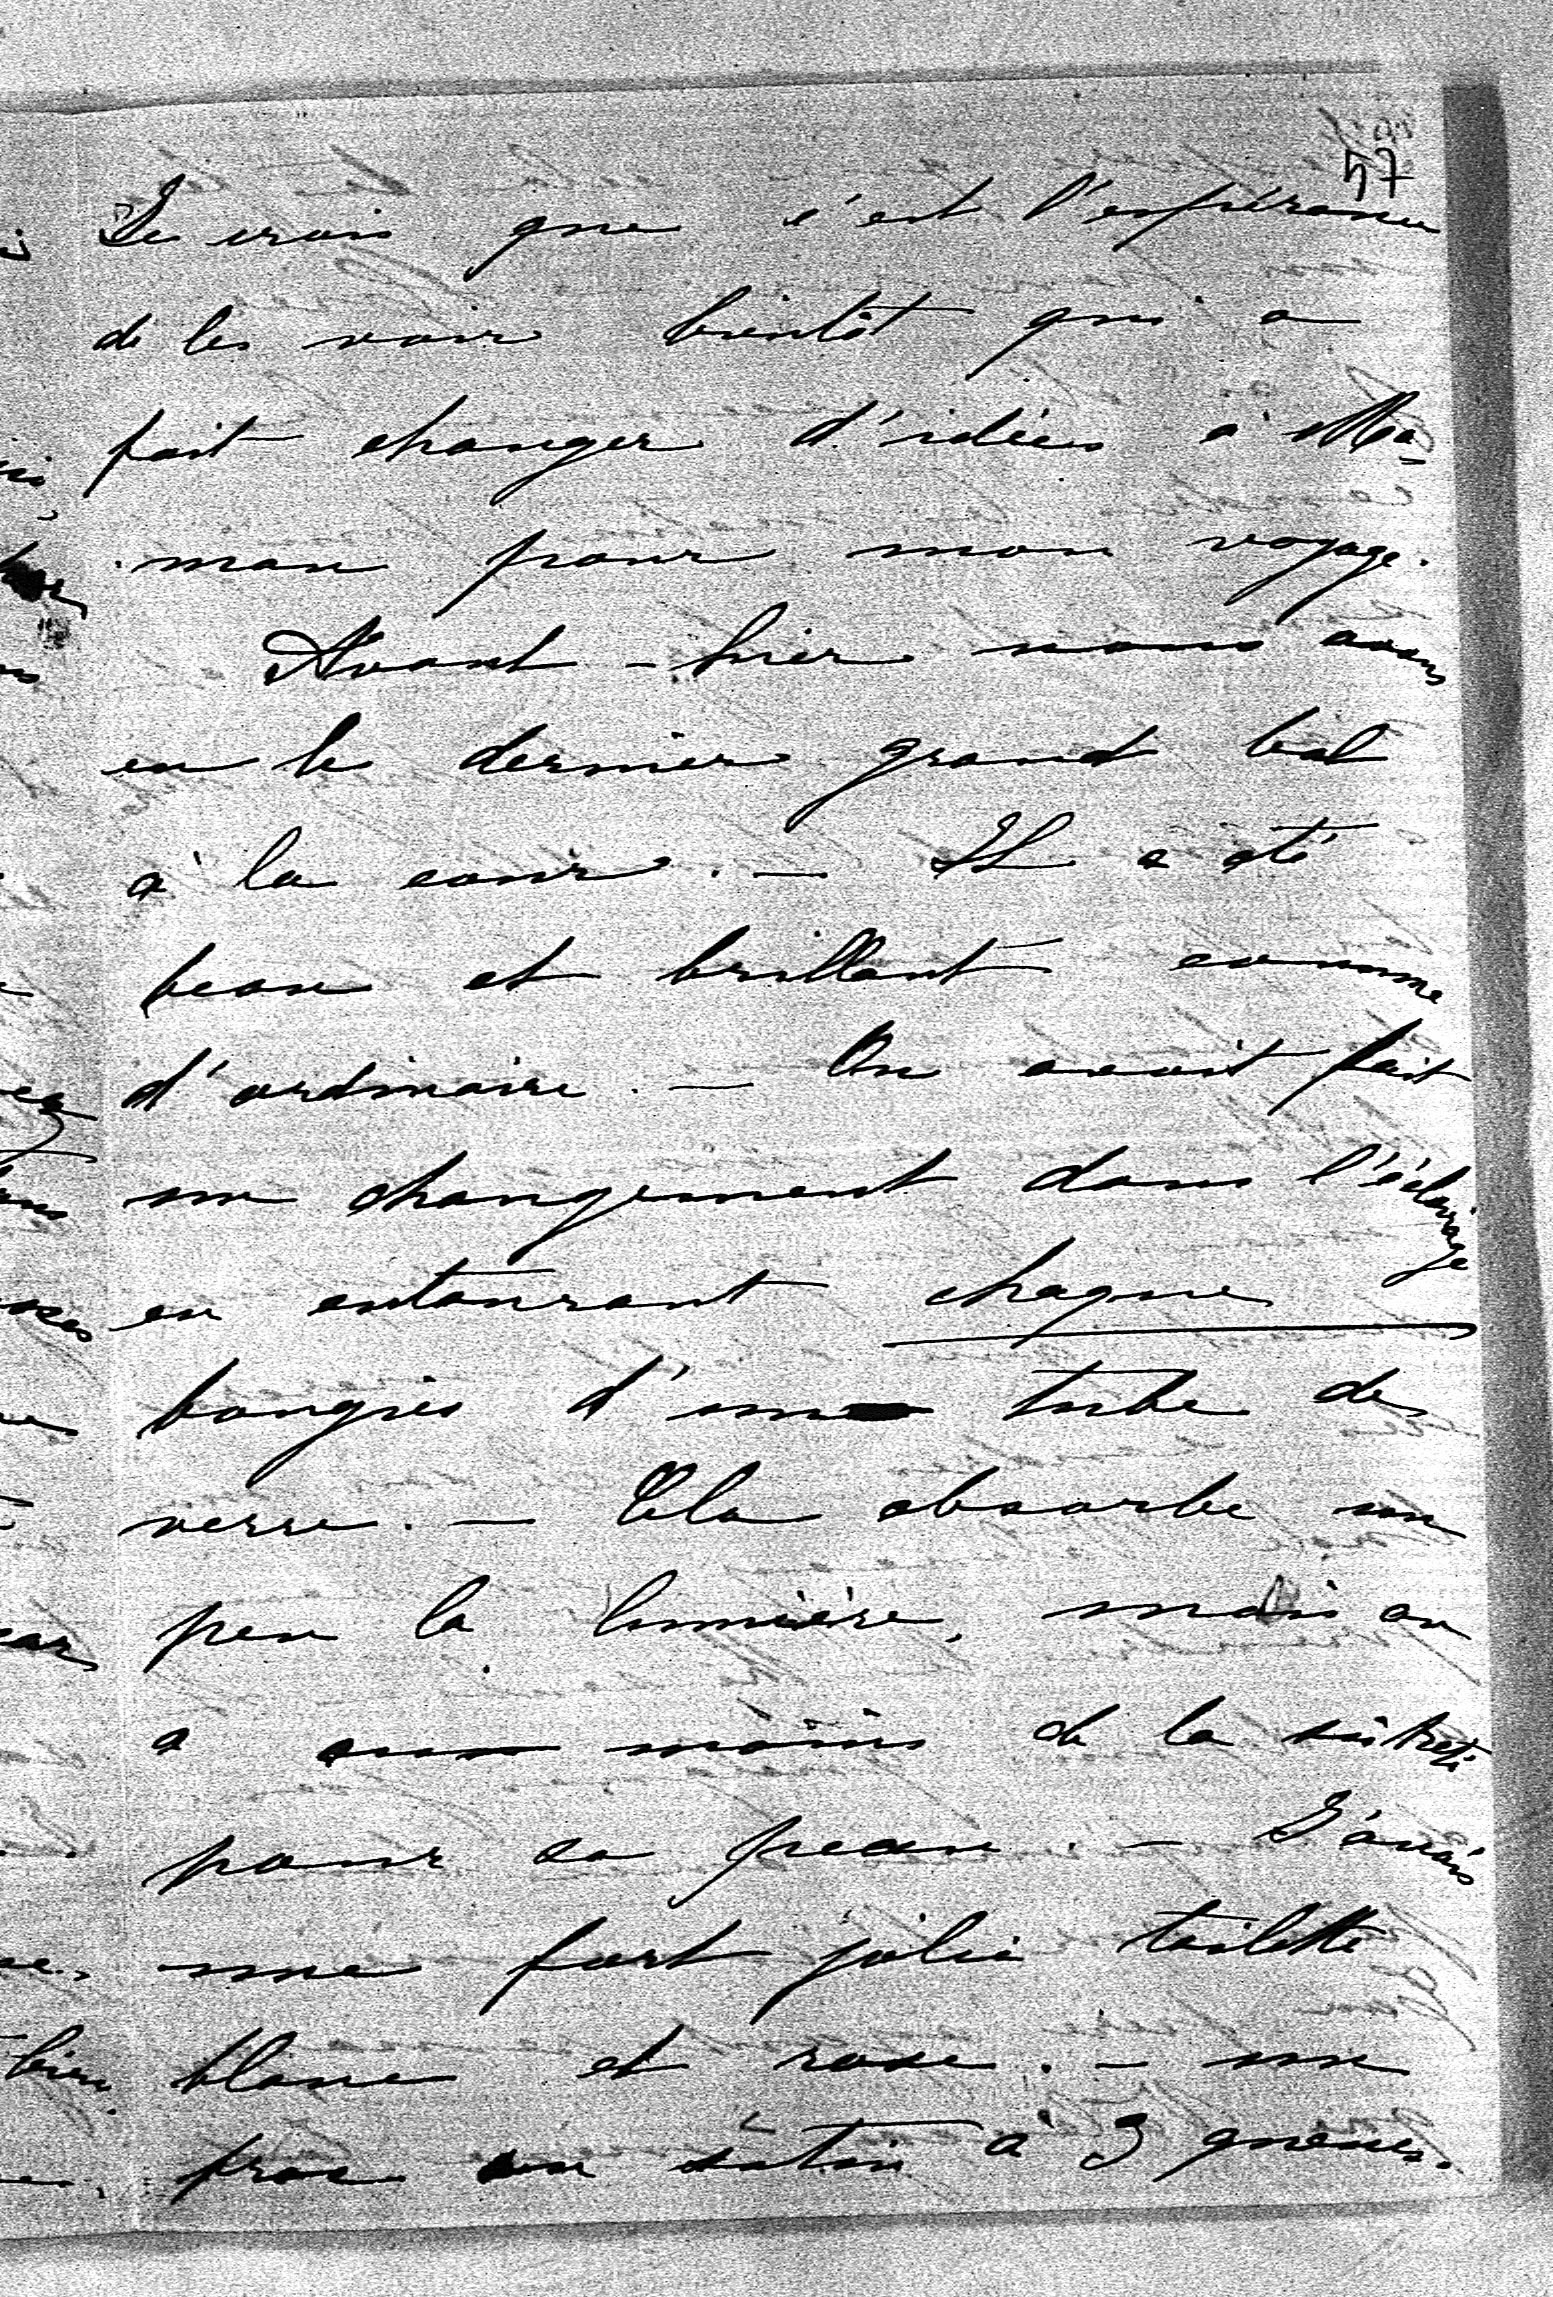 57
Je crois que c'est l'espérance
de les voir bientôt qui a
fait changer d'idées à Ma-
man pour mon voyage.
Avant-hier nous avons
eu le dernier grand bal
à la cour. — Il a été
beau et brillant comme
d'ordinaire. — On avait fait
un changement dans l'éclairage
en entourant chaque
bougies d'un tube de
verre. — Cela absorbe un
peu la lumière, mais on
a au moins de la sûreté
pour sa peau. — J'avais
une fort jolie toilette
blanc et rose. — un
froc en satin à 3 queues.